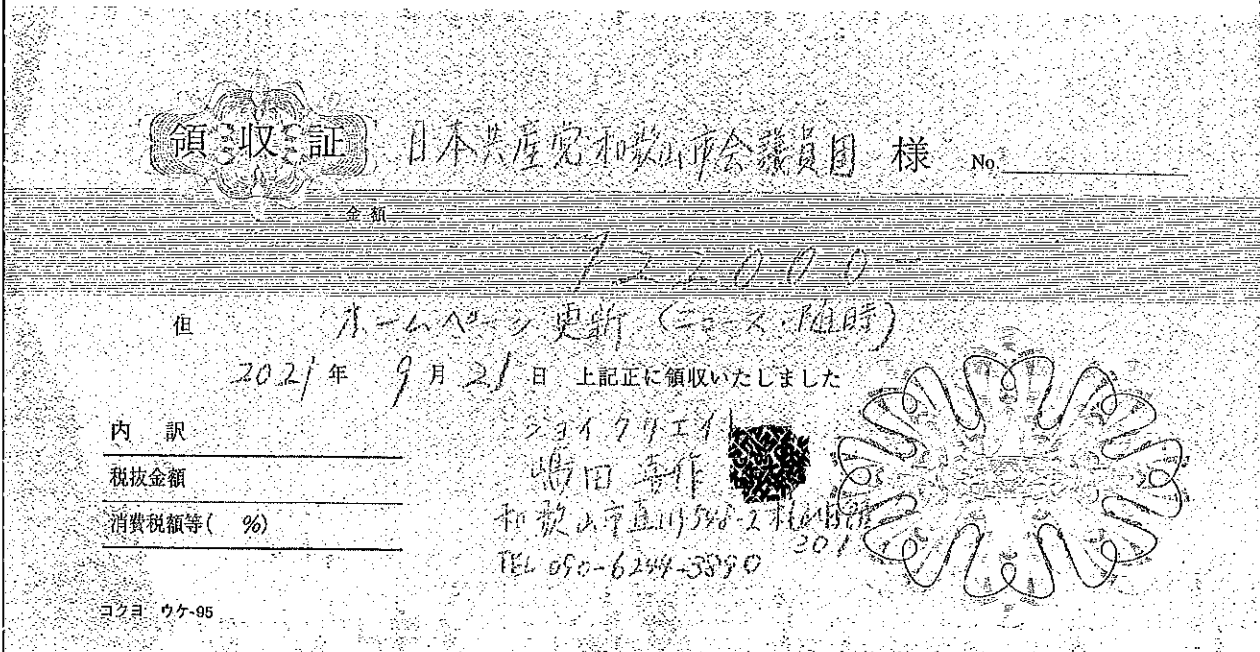 領収証 日本共産党和歌山市会議員団 様 No.
金額
¥22000-
但 ホームページ更新（ニュース・随時）
2021年 9月 21日 上記正に領収いたしました
内 訳
税抜金額
消費税額等( %)
ジョイクリエイト
嶋田 喜作
和歌山市直川548-2
201
TEL 090-6244-3890
コクヨ ウケ-95